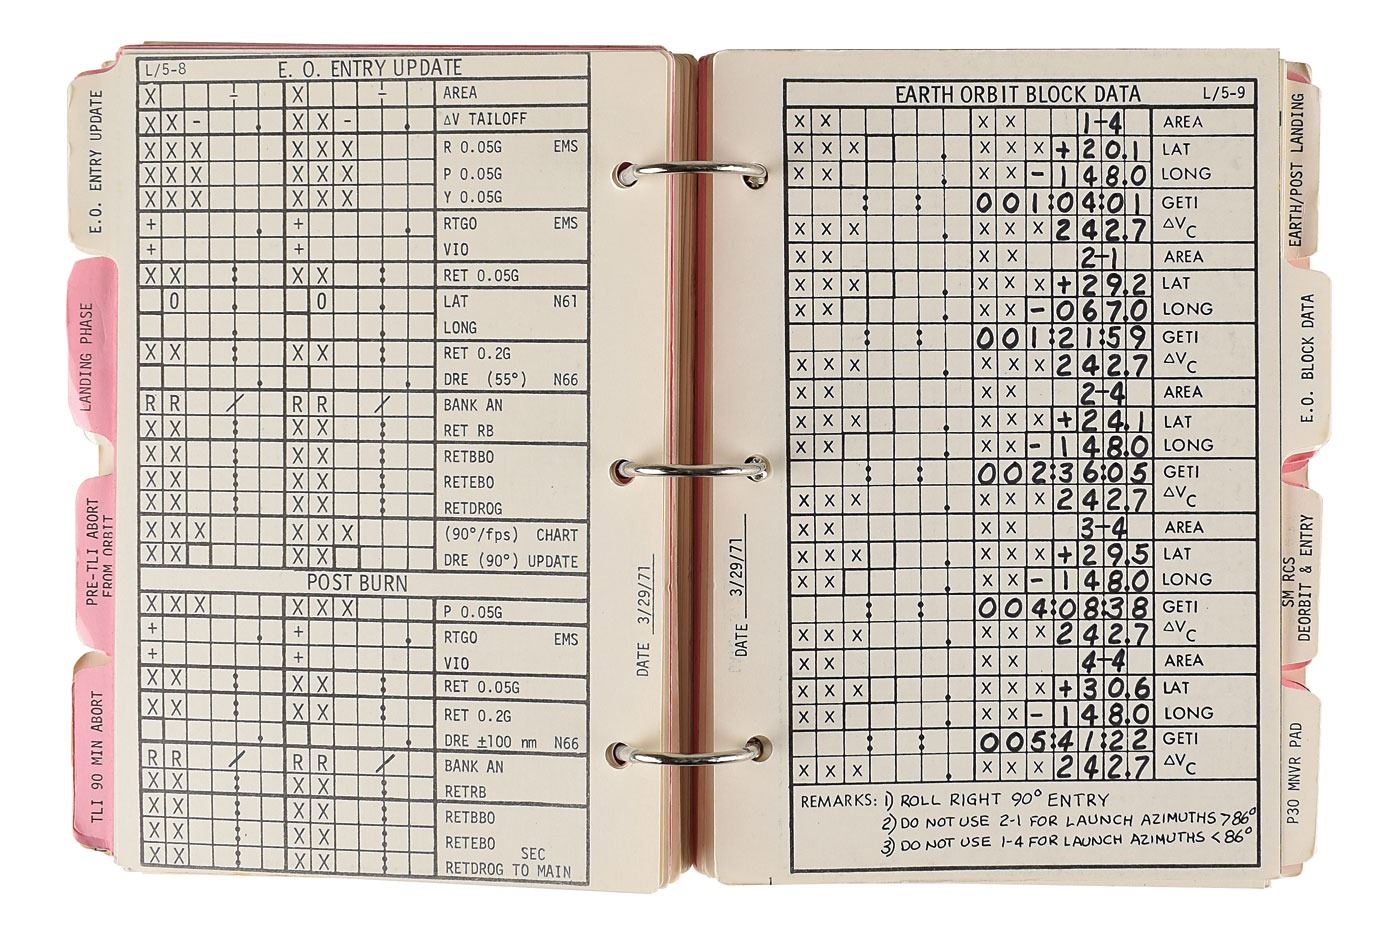 E.O. ENTRY UPDATE
LANDING PHASE
PRE-TLI ABORT
FROM ORBIT
TLI 90 MIN ABORT
L/5-8 E. O. ENTRY UPDATE
X ÷ X ÷ AREA
X X - . X X - . ΔV TAILOFF
X X X X X X R 0.05G EMS
X X X X X X P 0.05G
X X X X X X Y 0.05G
+ . + . RTGO EMS
+ + VIO
X X : X X : RET 0.05G
0 0 LAT N61
LONG
X X : X X : RET 0.2G
. . DRE (55°) N66
R R / R R / BANK AN
X X : X X : RET RB
X X : X X : RETBBO
X X : X X : RETEBO
X X : X X : RETDROG
X X X X X X (90°/fps) CHART
X X X X DRE (90°) UPDATE
POST BURN
X X X X X X P 0.05G
+ . + . RTGO EMS
+ + VIO
X X : X X : RET 0.05G
X X : X X : RET 0.2G
. . DRE ±100 nm N66
R R / R R / BANK AN
X X : X X : RETRB
X X : X X : RETBBO
X X : X X : RETEBO
SEC
X X : X X : RETDROG TO MAIN
DATE 3/29/71
DATE 3/29/71
EARTH ORBIT BLOCK DATA L/5-9
X X X X 1-4 AREA
X X X . X X X +20.1 LAT
X X . X X -148.0 LONG
: : 001:04:01 GETI
X X X . X X X 242.7 ΔVC
X X X X 2-1 AREA
X X X . X X X +29.2 LAT
X X . X X -067.0 LONG
: : 001:21:59 GETI
X X X . X X X 242.7 ΔVC
X X X X 2-4 AREA
X X X . X X X +24.1 LAT
X X . X X -148.0 LONG
: : 002:36:05 GETI
X X X . X X X 242.7 ΔVC
X X X X 3-4 AREA
X X X . X X X +29.5 LAT
X X . X X -148.0 LONG
: : 004:08:38 GETI
X X X . X X X 242.7 ΔVC
X X X X 4-4 AREA
X X X . X X X +30.6 LAT
X X . X X -148.0 LONG
: : 005:41:22 GETI
X X X . X X X 242.7 ΔVC
REMARKS: 1) ROLL RIGHT 90° ENTRY
2) DO NOT USE 2-1 FOR LAUNCH AZIMUTHS >86°
3) DO NOT USE 1-4 FOR LAUNCH AZIMUTHS <86°
EARTH/POST LANDING
E.O. BLOCK DATA
SM RCS
DEORBIT & ENTRY
P30 MNVR PAD